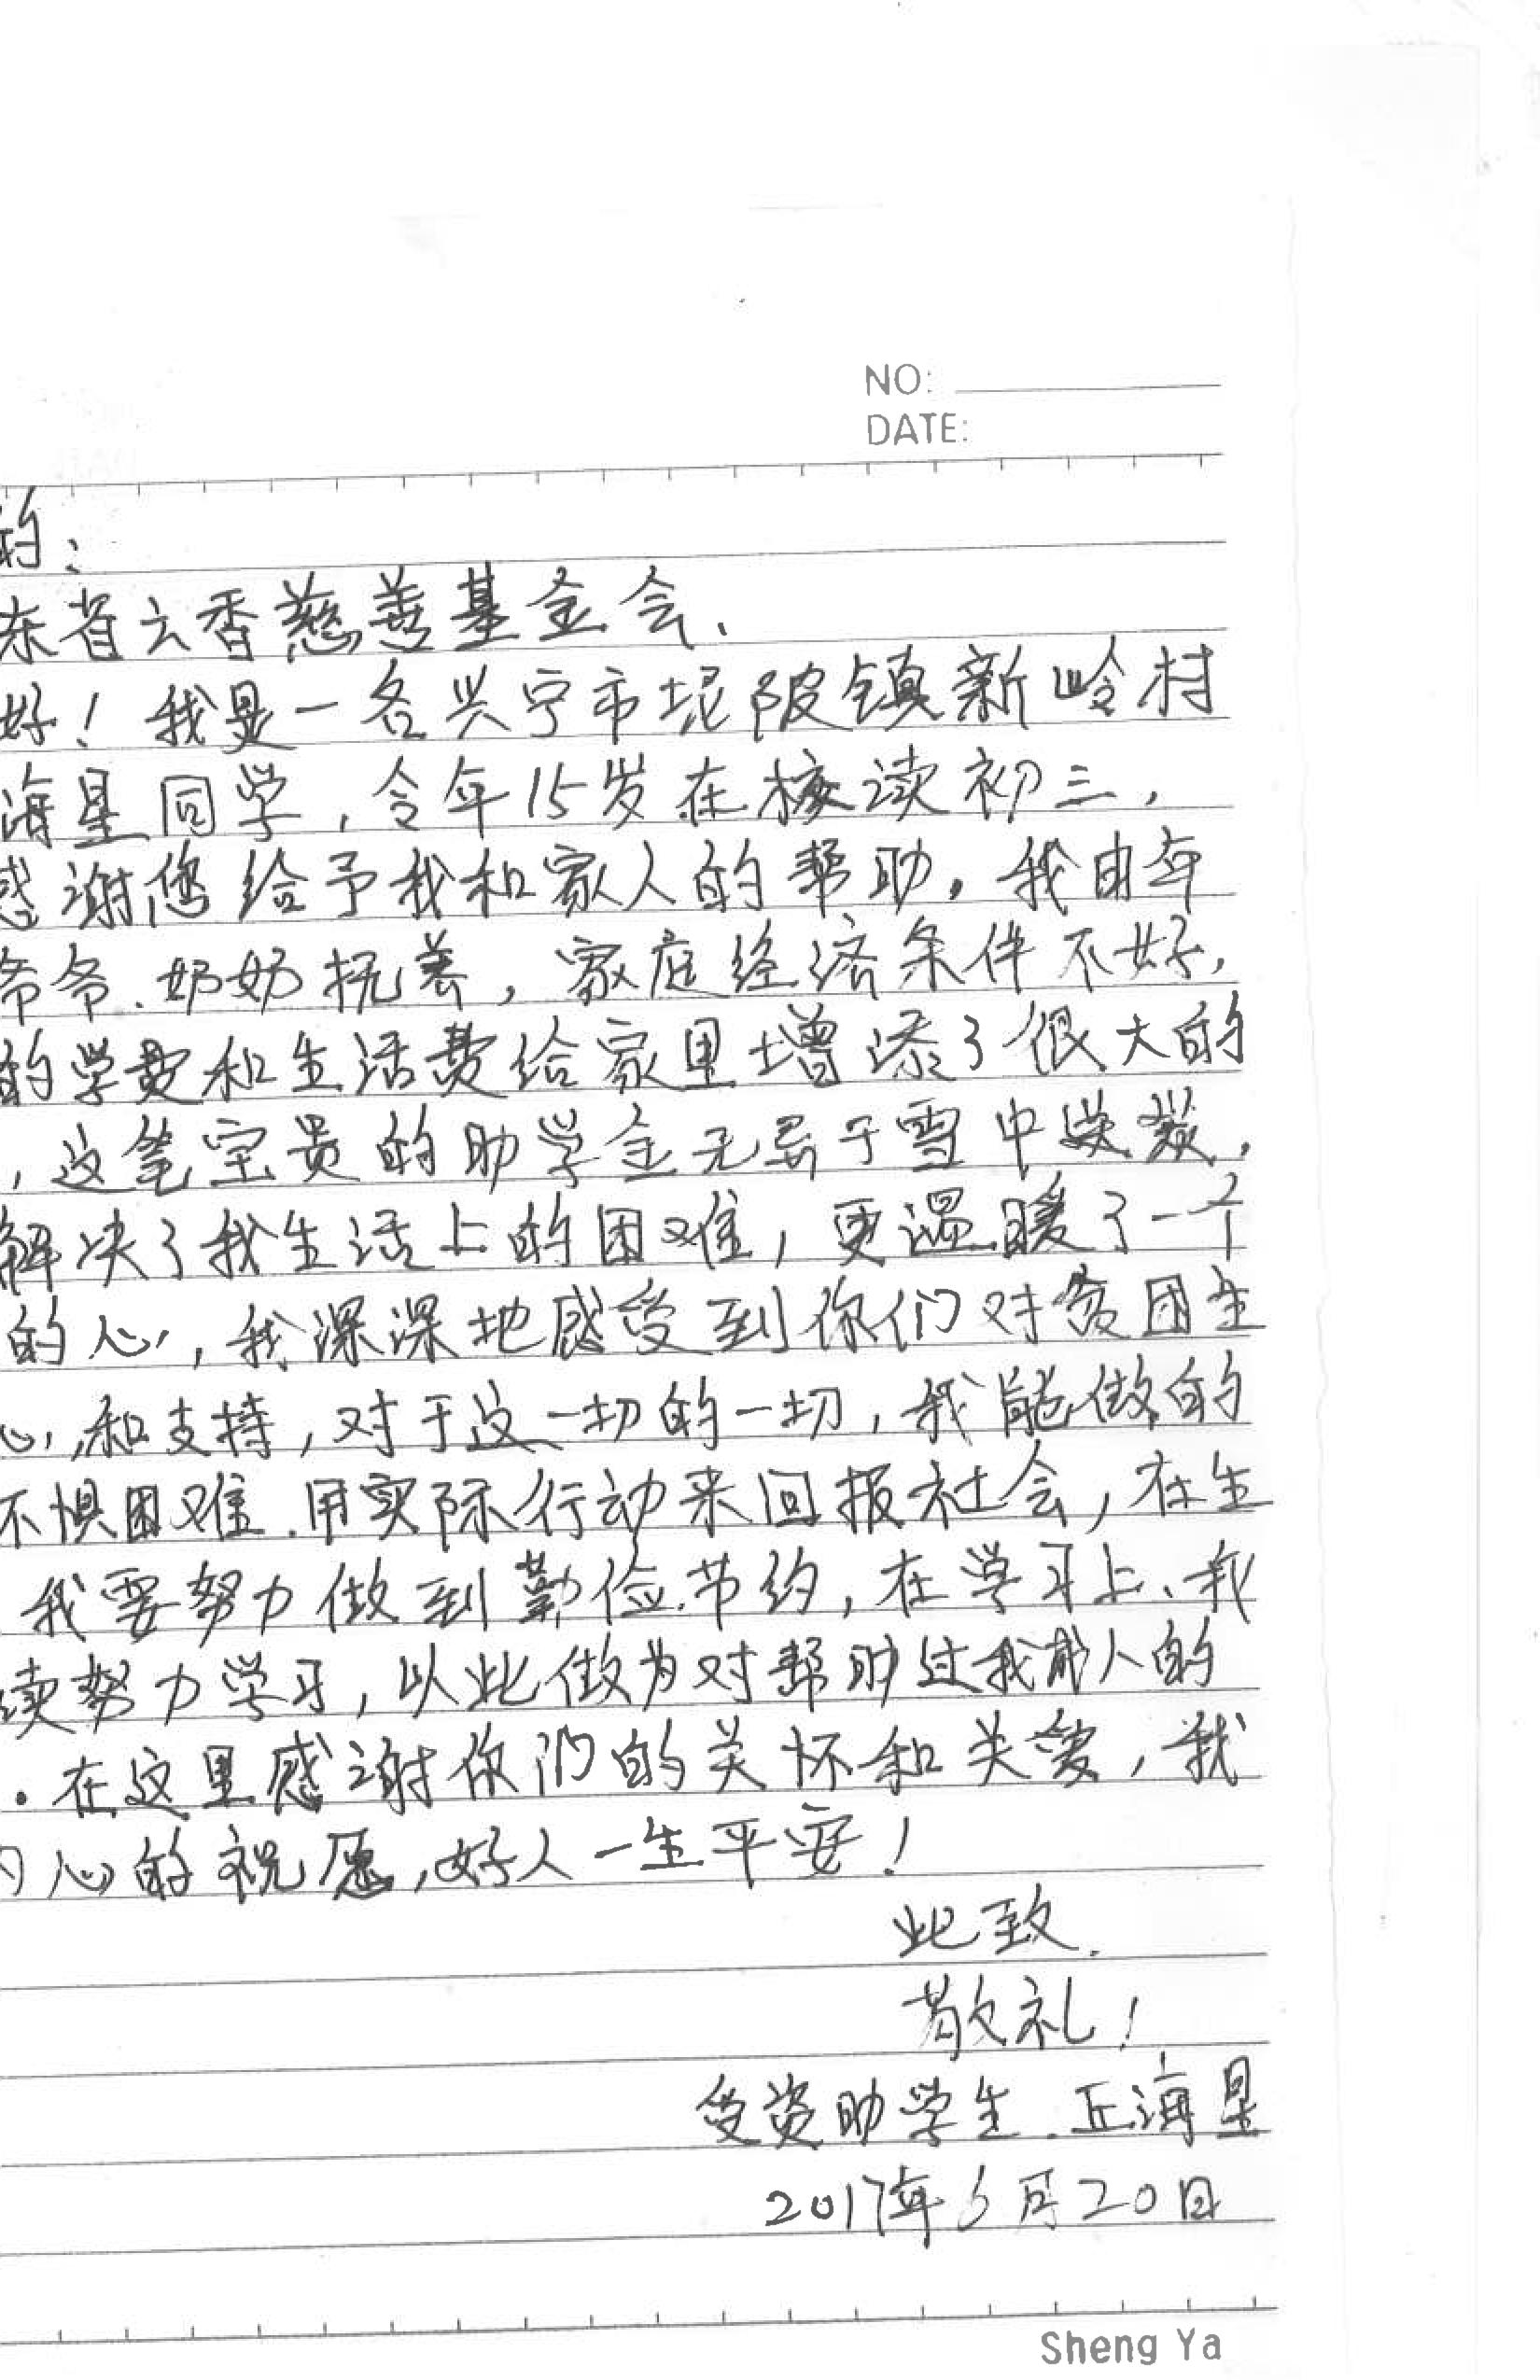 NO:
DATE:
的：
东省六香慈善基金会、
好！我是一名兴宁市坭陂镇新岭村
海星同学，今年15岁在校读初三，
感谢您给予我和家人的帮助。我由年
爷爷、奶奶抚养，家庭经济条件不好，
的学费和生活费给家里增添了很大的
，这笔宝贵的助学金无异于雪中送炭，
解决了我生活上的困难，更温暖了一个
的心，我深深地感受到你们对贫困生
心，和支持，对于这一切的一切，我能做的
不惧困难、用实际行动来回报社会，在生
我要努力做到勤俭节约，在学习上、我
续努力学习，以此做为对帮助过我的人的
。在这里感谢你们的关怀和关爱，我
内心的祝愿，好人一生平安！
此致、
敬礼！
受资助学生、丘海星
2017年 月20日
Sheng Ya